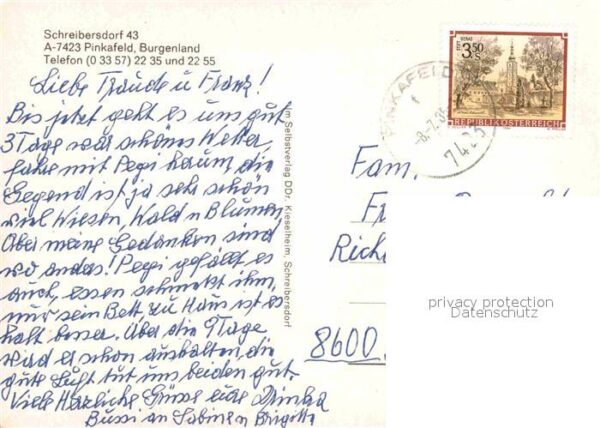 Schreibersdorf 43
A-7423 Pinkafeld, Burgenland
Telefon (0 33 57) 22 35 und 22 55
Liebe Traude u Franz!
Bis jetzt geht es uns gut
3 Tage war schönes Wetter,
fahre mit Pepi herum, die
Gegend ist ja sehr schön
viel Wiesen, Wald u Blumen
Aber meine Gedanken sind
wo anders! Pepi gefällt es
auch, essen schmeckt ihm,
nur sein Bett, zu Haus ist es
halt besser. Aber die 9 Tage
wird er schon aushalten, die
gute Luft tut uns beiden gut.
Viele Herzliche Grüsse eure
Bussi an Sabine u Brigitte
im Selbstverlag DDr. Kieselheim, Schreibersdorf
3.50
REPUBLIK ÖSTERREICH
PINKAFELD
7423
Fam.
Rich
8600
privacy protection
Datenschutz